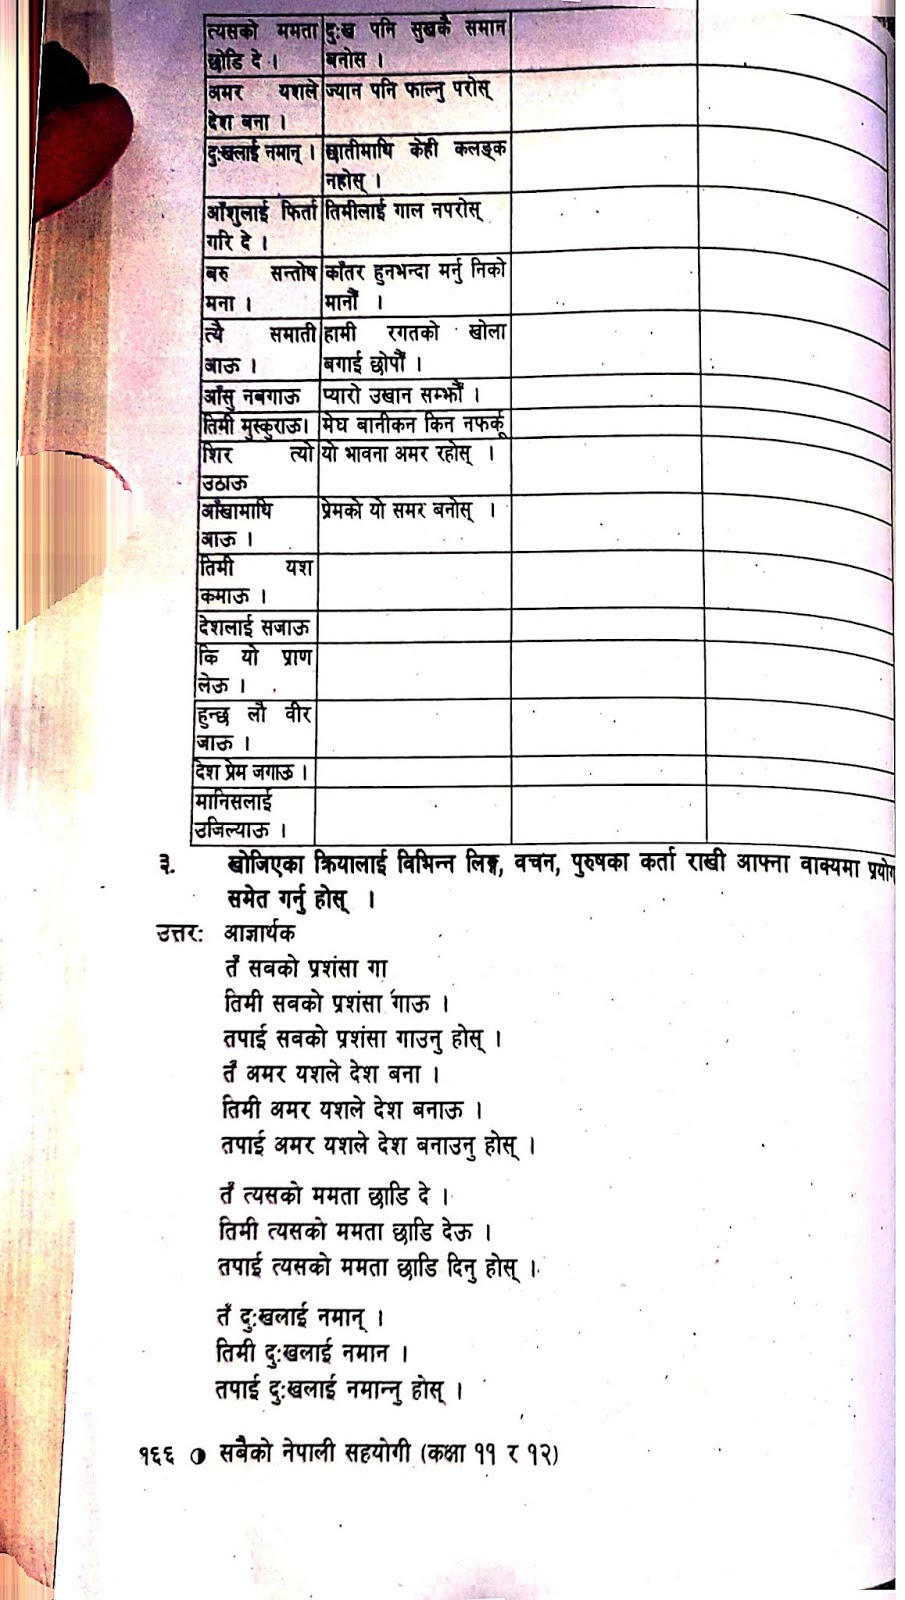 त्यसको ममता दुःख पनि सुखकै समान
छोडि दे । बनोस ।
अमर यशले ज्यान पनि फाल्नु परोस्
देश बना ।
दुःखलाई नमान् । छातीमाथि केही कलङ्क
नहोस् ।
आँशुलाई फिर्ता तिमीलाई गाल नपरोस्
गरि दे ।
बरु सन्तोष काँतर हुनभन्दा मर्नु निको
मना । मानौं ।
त्यै समाती हामी रगतको खोला
आऊ । बगाई छोपौं ।
आँसु नबगाऊ प्यारो उखान सम्झौं ।
तिमी मुस्कुराऊ। मेघ बानीकन किन नफर्कू
शिर त्यो यो भावना अमर रहोस् ।
उठाऊ
आँखामाथि प्रेमको यो समर बनोस् ।
आऊ ।
तिमी यश
कमाऊ ।
देशलाई सजाऊ
कि यो प्राण
लेऊ ।
हुन्छ लौ वीर
जाऊ ।
देश प्रेम जगाऊ ।
मानिसलाई
उजिल्याऊ ।
३. खोजिएका क्रियालाई विभिन्न लिङ्ग, वचन, पुरुषका कर्ता राखी आफ्ना वाक्यमा प्रयोग
समेत गर्नु होस् ।
उत्तरः आज्ञार्थक
तँ सबको प्रशंसा गा
तिमी सबको प्रशंसा गाऊ ।
तपाई सबको प्रशंसा गाउनु होस् ।
तँ अमर यशले देश बना ।
तिमी अमर यशले देश बनाऊ ।
तपाई अमर यशले देश बनाउनु होस् ।
तँ त्यसको ममता छाडि दे ।
तिमी त्यसको ममता छाडि देऊ ।
तपाई त्यसको ममता छाडि दिनु होस् ।
तँ दुःखलाई नमान् ।
तिमी दुःखलाई नमान ।
तपाई दुःखलाई नमान्नु होस् ।
१६६ सबैको नेपाली सहयोगी (कक्षा ११ र १२)